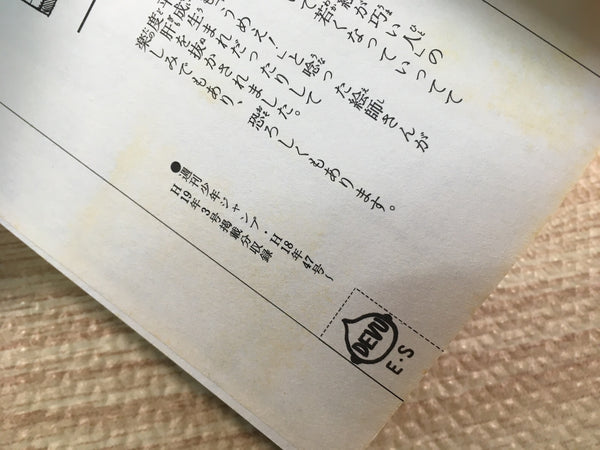 が巧い人の
若くなっていって
て
うめえ!」と唸った絵師さんが
平成生まれだったりして
度肝を抜かされました。
楽しみでもあり、恐ろしくもあります。
●週刊少年ジャンプ・H18年47号/
H19年3号掲載分収録
DEVU
E・S